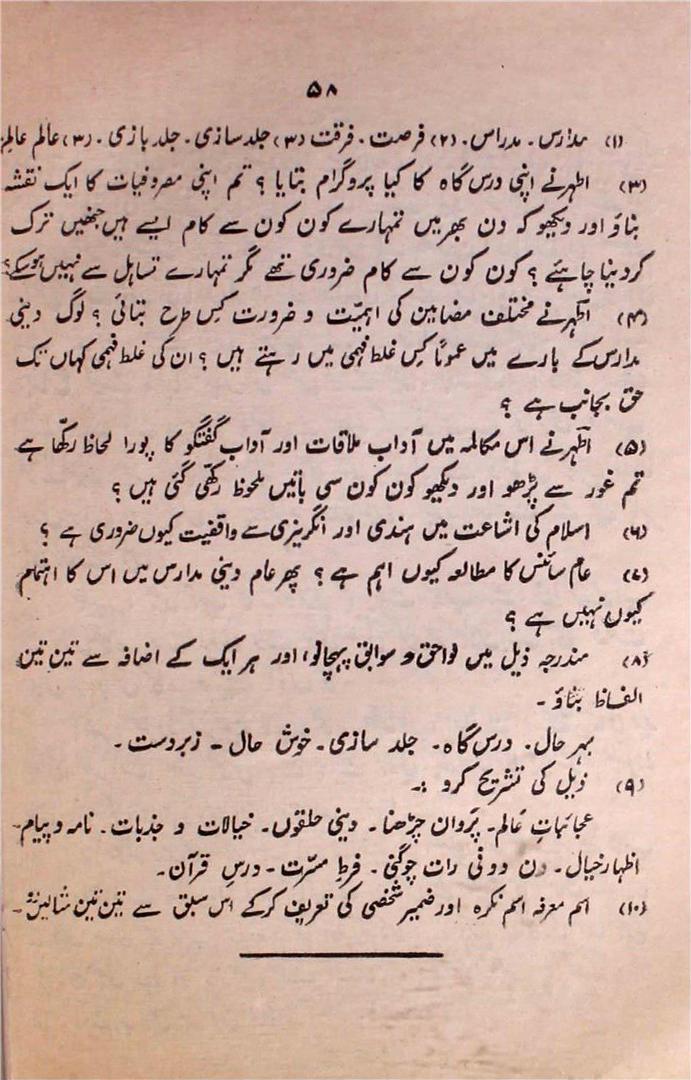 ۵۸
(۱) مدارس۔ مدراس۔ (۲) فرصت۔ فرقت (۳) جلد سازی۔ جلد بازی۔ (۳) عالَم عالِم
(۳) اظہر نے اپنی درس گاہ کا کیا پروگرام بتایا ؟ تم اپنی مصروفیات کا ایک نقشہ
بناؤ اور دیکھو کہ دن بھر میں تمہارے کون کون سے کام ایسے ہیں جنھیں ترک
کر دینا چاہئے ؟ کون کون سے کام ضروری تھے مگر تمہارے تساہل سے نہیں ہو سکے؟
(۴) اظہر نے مختلف مضامین کی اہمیّت و ضرورت کس طرح بتائی ؟ لوگ دینی
مدارس کے بارے میں عموماً کس غلط فہمی میں رہتے ہیں ؟ ان کی غلط فہمی کہاں تک
حق بجانب ہے ؟
(۵) اظہر نے اس مکالمہ میں آداب ملاقات اور آداب گفتگو کا پورا لحاظ رکھّا ہے
تم غور سے پڑھو اور دیکھو کون کون سی باتیں ملحوظ رکھّی گئی ہیں ؟
(۶) اسلام کی اشاعت میں ہندی اور انگریزی سے واقفیت کیوں ضروری ہے ؟
(۷) عام سائنس کا مطالعہ کیوں اہم ہے ؟ پھر عام دینی مدارس میں اس کا اہتمام
کیوں نہیں ہے ؟
(۸) مندرجہ ذیل میں لواحق و سوابق پہچانو، اور ہر ایک کے اضافہ سے تین تین
الفاظ بناؤ ۔
بہر حال۔ درس گاہ۔ جلد سازی۔ خوش حال ۔ زبردست ۔
(۹) ذیل کی تشریح کرو :۔
عجائباتِ عالَم۔ پَروان چڑھنا۔ دینی حلقوں۔ خیالات و جذبات۔ نامہ و پیام۔
اظہارِ خیال۔ دن دونی رات چوگنی۔ فرطِ مسرّت۔ درسِ قرآن۔
(۱۰) اسم معرفہ اسم نکرہ اور ضمیر شخصی کی تعریف کرکے اس سبق سے تین تین مثالیں دو۔